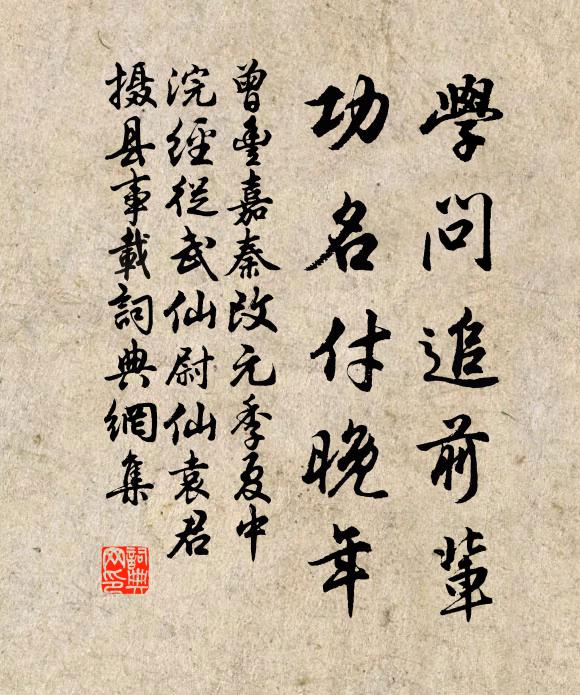 學問追前輩
功名付晚年
曾豐嘉秦改元季夏中
浣經從武仙尉仙袁君
摄县事載詞典網集
詞典网印